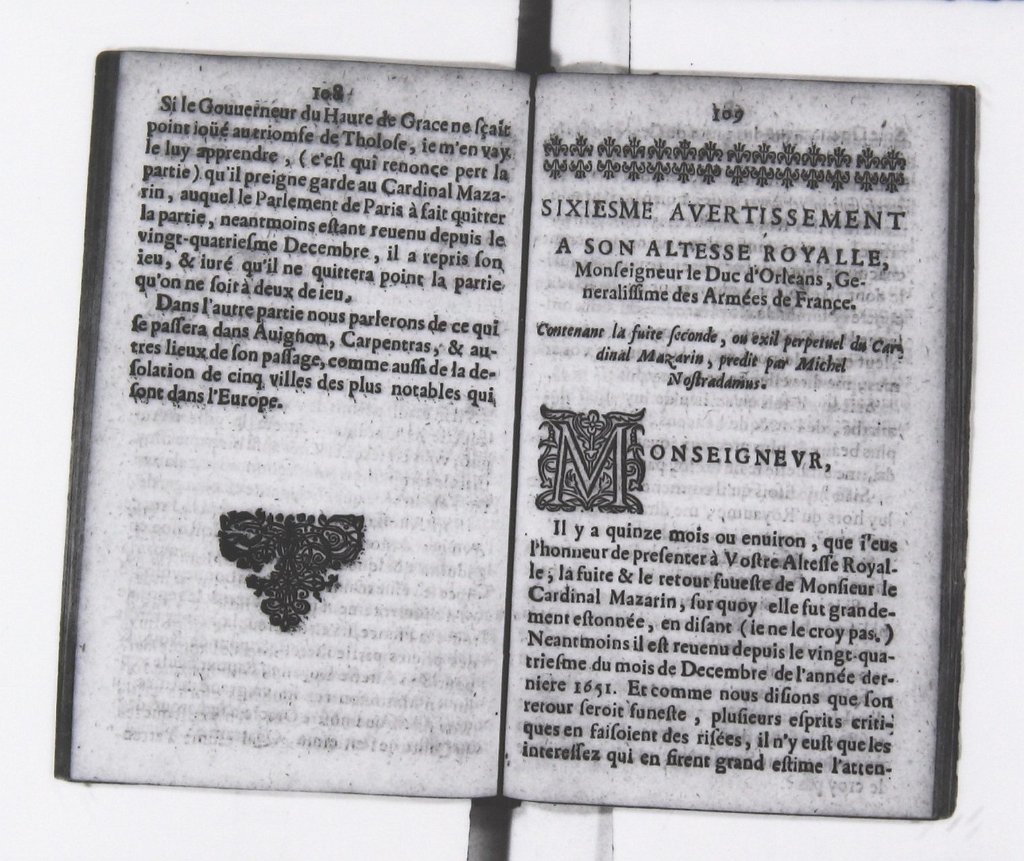 108
Si le Gouuerneur du Haure de Grace ne sçait
point ioüé au triomfe de Tholose, ie m'en vay
le luy apprendre, (c'est qui renonçe pert la
partie) qu'il preigne garde au Cardinal Maza-
rin, auquel le Parlement de Paris à fait quitter
la partie, neantmoins estant reuenu depuis le
vingt-quatriesme Decembre, il a repris son
ieu, & iuré qu'il ne quittera point la partie
qu'on ne soit à deux de ieu.
Dans l'autre partie nous parlerons de ce qui
se passera dans Auignon, Carpentras, & au-
tres lieux de son passage, comme aussi de la de-
solation de cinq villes des plus notables qui
sont dans l'Europe.
109
SIXIESME AVERTISSEMENT
A SON ALTESSE ROYALLE,
Monseigneur le Duc d'Orleans, Ge-
neralissime des Armées de France.
Contenant la fuite seconde, ou exil perpetuel du Car-
dinal Mazarin, predit par Michel
Nostradamus.
MONSEIGNEVR,
Il y a quinze mois ou enuiron, que i'eus
l'honneur de presenter à Vostre Altesse Royal-
le, la fuite & le retour fuueste de Monsieur le
Cardinal Mazarin, sur quoy elle fut grande-
ment estonnée, en disant (ie ne le croy pas.)
Neantmoins il est reuenu depuis le vingt-qua-
triesme du mois de Decembre de l'année der-
niere 1651. Et comme nous disions que son
retour seroit funeste, plusieurs esprits criti-
ques en faisoient des risées, il n'y eust que les
interessez qui en firent grand estime l'atten-